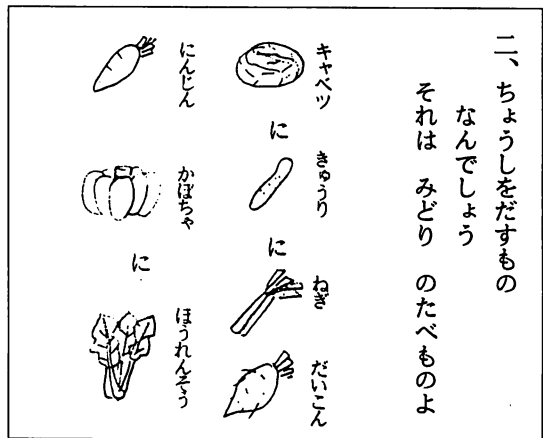 二、ちょうしをだすもの
なんでしょう
それは みどり のたべものよ
キャベツ に きゅうり に ねぎ だいこん
にんじん かぼちゃ に ほうれんそう